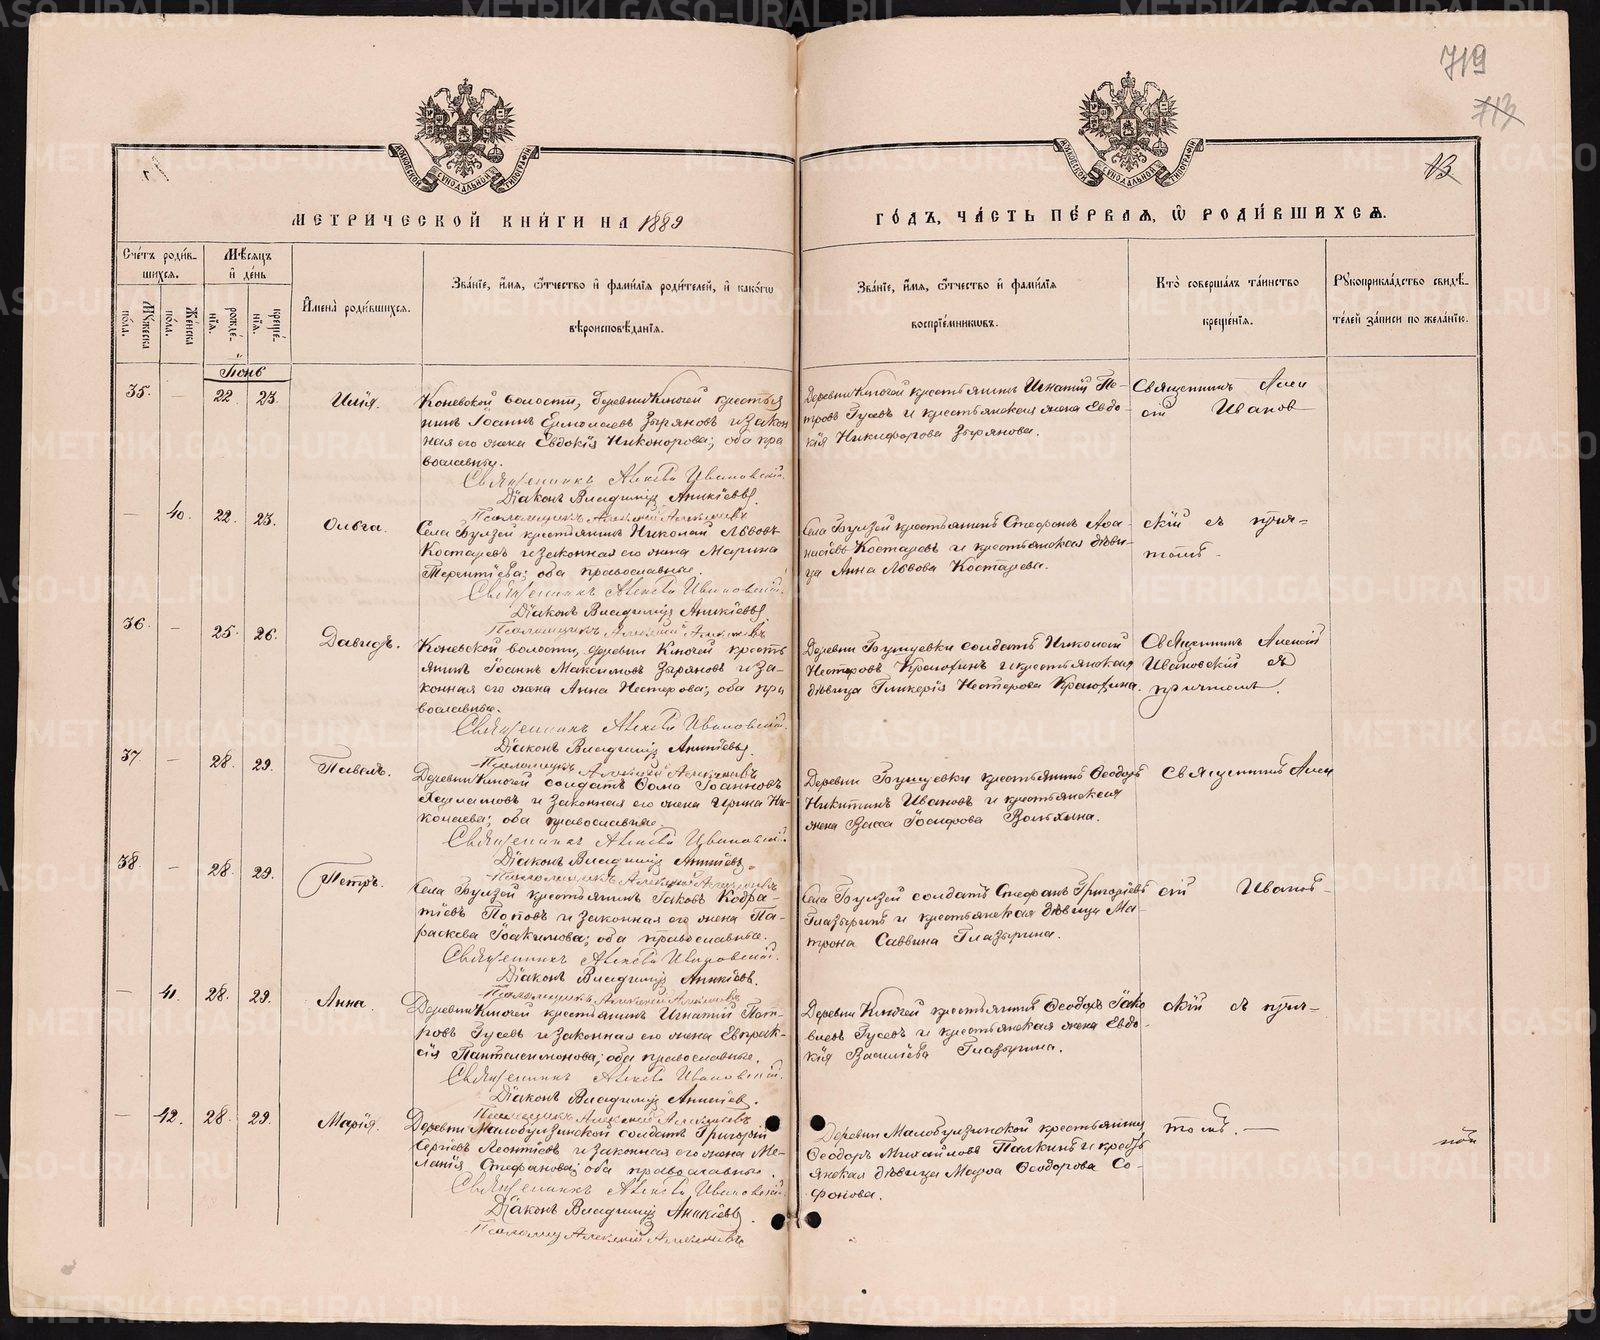 719
713
13
МОСКОВСКОЙ СѴНОДАЛЬНОЙ ТИПОГРАФІИ
МОСКОВСКОЙ СѴНОДАЛЬНОЙ ТИПОГРАФІИ
МЕТРИЧЕСКОЙ КНИГИ НА 1889
ГОДЪ, ЧАСТЬ ПЕРВАЯ, Ѡ РОДИВШИХСЯ.
Счетъ родив-
шихся.
Мужеска пола.
Женска пола.
Мѣсяцъ
и день
рожде-
нія.
креще-
нія.
Имена родившихся.
Званіе, имя, ѿчество и фамилія родителей, и какогѡ
вѣроисповѣданія.
Званіе, имя, ѿчество и фамилія
воспріемниковъ.
Кто совершалъ таинство
крещенія.
Рукоприкладство свидѣ-
телей записи по желанію.
Іюнь
35. - 22 23. Илія.
Коневской волости, деревни Ключей крестья
нинъ Іоаннъ Ермолаевъ Зыряновъ и закон
ная его жена Евдокія Никонорова; оба пра
вославны.
Священникъ Алексѣй Ивановскій.
Діаконъ Владиміръ Аникіевъ.
Псаломщикъ Алексій
Деревни Ключей крестьянинъ Игнатій Пе-
тровъ Гусевъ и крестьянская жена Евдо-
кія Никифорова Зырянова.
Священникъ Алек
сій Иванов
- 40. 22. 23. Ольга.
Села Булзей крестьянинъ Николай Львовъ
Костаревъ и законная его жена Марина
Терентіева; оба православные.
Священникъ Алексѣй Ивановскій.
Діаконъ Владиміръ Аникіевъ.
Псаломщикъ Алексій
Села Булзей крестьянинъ Стефанъ Аѳа-
насіевъ Костаревъ и крестьянская дѣви-
ца Анна Львова Костарева.
скій съ прич-
томъ.
36. - 25. 26. Давидъ.
Коневской волости, деревни Ключей кресть
янинъ Іоаннъ Максимовъ Зыряновъ и за-
конная его жена Анна Нестерова; оба пра
вославные.
Священникъ Алексѣй Ивановскій.
Діаконъ Владиміръ Аникіевъ.
Псаломщикъ Алексій
Деревни солдатъ Николай
Нестеровъ и крестьянская
дѣвица Гликерія Нестерова
Священникъ Алексій
Ивановскій съ
причтомъ.
37. - 28. 29. Павелъ.
Деревни Ключей солдатъ Ѳома Іоанновъ
и законная его жена Ирина Ни-
колаева; оба православные.
Священникъ Алексѣй Ивановскій.
Діаконъ Владиміръ Аникіевъ.
Псаломщикъ Алексій
Деревни крестьянинъ Ѳеодоръ
Никитинъ Ивановъ и крестьянская
жена Васса Іосифова
Священникъ Алек
38. - 28. 29. Петръ.
Села Булзей крестьянинъ Іаковъ Кодра-
тіевъ Поповъ и законная его жена Па-
раскева Іоакимова; оба православные.
Священникъ Алексѣй Ивановскій.
Діаконъ Владиміръ Аникіевъ.
Псаломщикъ Алексій
Села Булзей солдатъ Стефанъ Григоріевъ
Глазыринъ и крестьянская дѣвица Ма-
трона Саввина Глазырина.
сій Иванов-
- 41. 28. 29. Анна.
Деревни Ключей крестьянинъ Игнатій Пет-
ровъ Гусевъ и законная его жена Евпрак-
сія Пантелеимонова; оба православные.
Священникъ Алексѣй Ивановскій.
Діаконъ Владиміръ Аникіевъ.
Псаломщикъ Алексій
Деревни Ключей крестьянинъ Ѳеодоръ Іако
влевъ Гусевъ и крестьянская жена Евдо-
кія Василіева Глазырина.
скій съ прич-
- 42. 28. 29. Марія.
Деревни Малобулзинской солдатъ Григорій
Сергіевъ Леонтіевъ и законная его жена Ме-
ланія Стефанова; оба православные.
Священникъ Алексѣй Ивановскій.
Діаконъ Владиміръ Аникіевъ
Псаломщ Алексій
Деревни Малобулзинской крестьянинъ
Ѳеодоръ Михайловъ и кресть
янская дѣвица Марѳа Ѳеодорова Со-
фонова.
томъ. -
METRIKI.GASO-URAL.RU